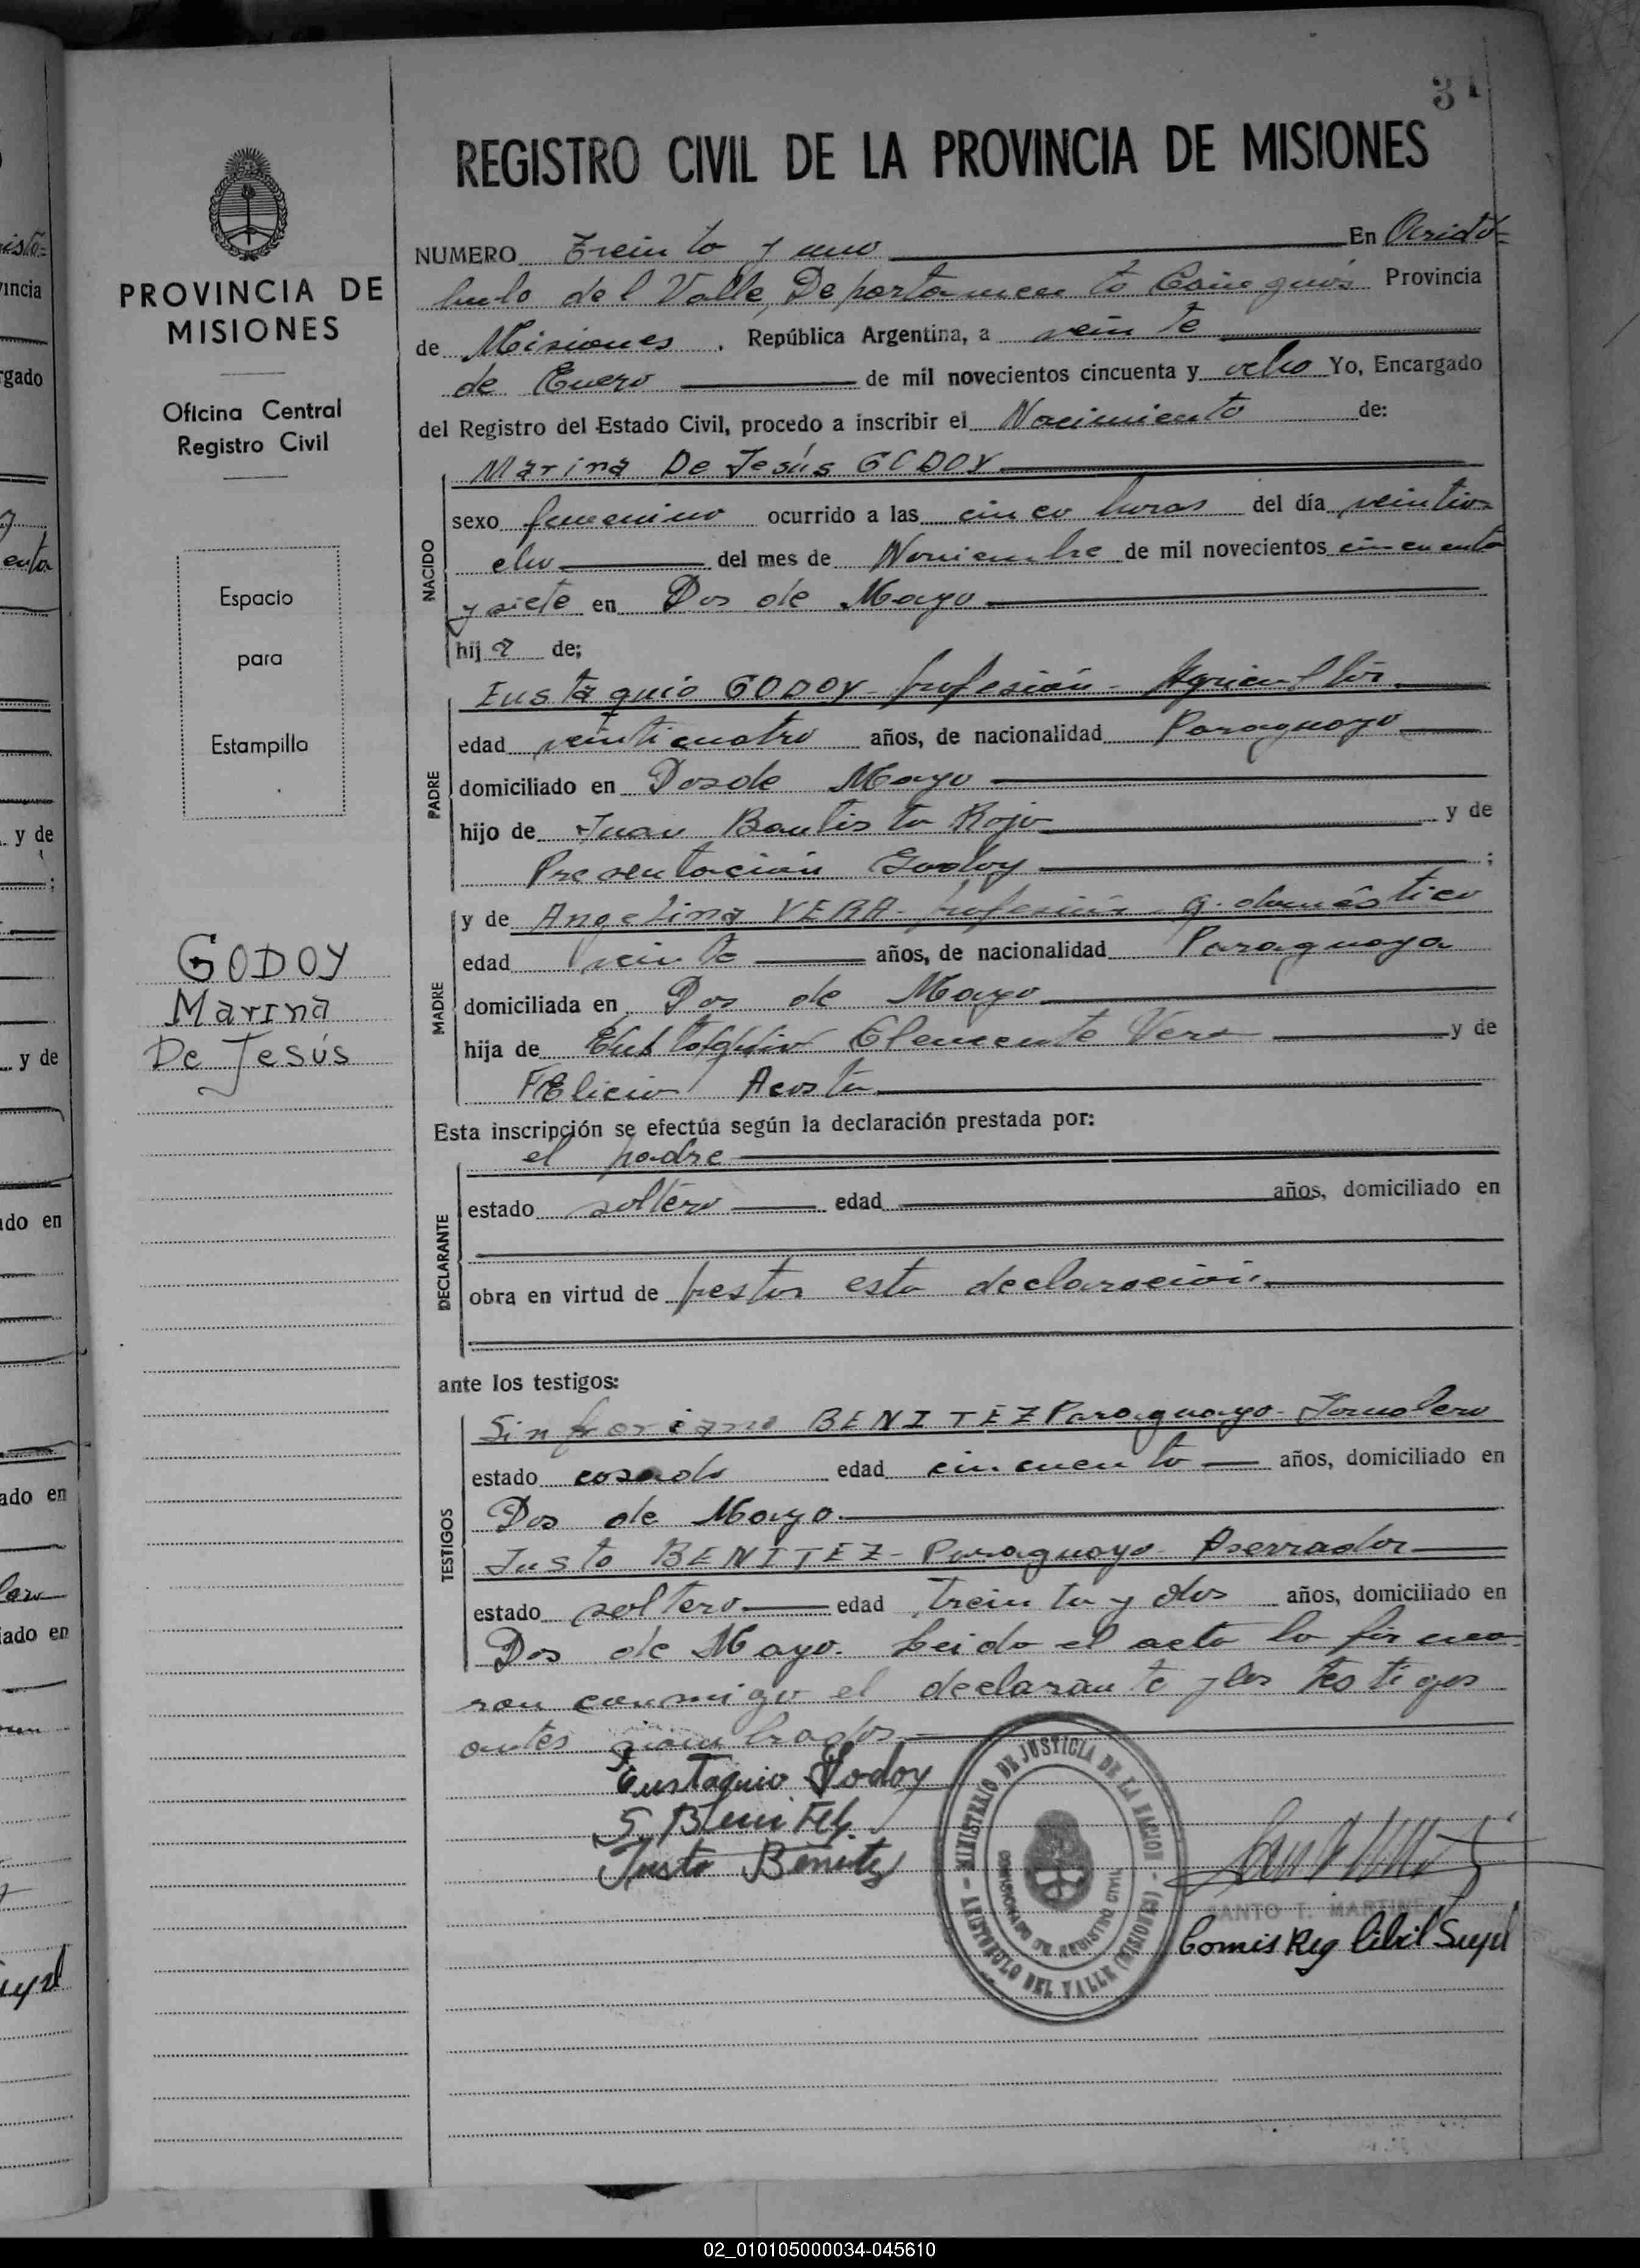 31
REGISTRO CIVIL DE LA PROVINCIA DE MISIONES
PROVINCIA DE
MISIONES
Oficina Central
Registro Civil
Espacio
para
Estampilla
GODOY
Marina
De Jesús
NUMERO Treinta y uno En Aristó=
bulo del Valle, Departamento Cainguás Provincia
de Misiones, República Argentina, a veinte
de Enero de mil novecientos cincuenta y ocho Yo, Encargado
del Registro del Estado Civil, procedo a inscribir el Nacimiento de:
NACIDO
Marina De Jesús GODOY
sexo femenino ocurrido a las cinco horas del día veintio-
cho del mes de Noviembre de mil novecientos cincuenta
y siete en Dos de Mayo
hija de;
PADRE
Eustaquio GODOY - profesión - Agricultor
edad veinticuatro años, de nacionalidad Paraguayo
domiciliado en Dos de Mayo
hijo de Juan Bautista Rojo y de
Presentación Godoy ;
MADRE
y de Angelina VERA - profesión - q. doméstico
edad veinte años, de nacionalidad Paraguaya
domiciliada en Dos de Mayo
hija de Eustaquio Clemente Vera y de
Felicia Acosta
Esta inscripción se efectúa según la declaración prestada por:
DECLARANTE
el padre
estado soltero edad años, domiciliado en
obra en virtud de prestar esta declaración
ante los testigos:
TESTIGOS
Sinforiano BENITEZ Paraguayo - Jornalero
estado casado edad cincuenta años, domiciliado en
Dos de Mayo.
Justo BENITEZ - Paraguayo - Aserrador
estado soltero edad treinta y dos años, domiciliado en
Dos de Mayo. Leida el acta la firma-
ron conmigo el declarante y los testigos
antes nombrados
Eustaquio Godoy
S. Benitez
Justo Benitez
MINISTERIO DE JUSTICIA DE LA NACION
COMISIONADO DE REGISTRO CIVIL
ARISTOBULO DEL VALLE (MISIONES)
SANTO T. MARTINEZ
Comis Reg Cibil Supl
02_010105000034-045610